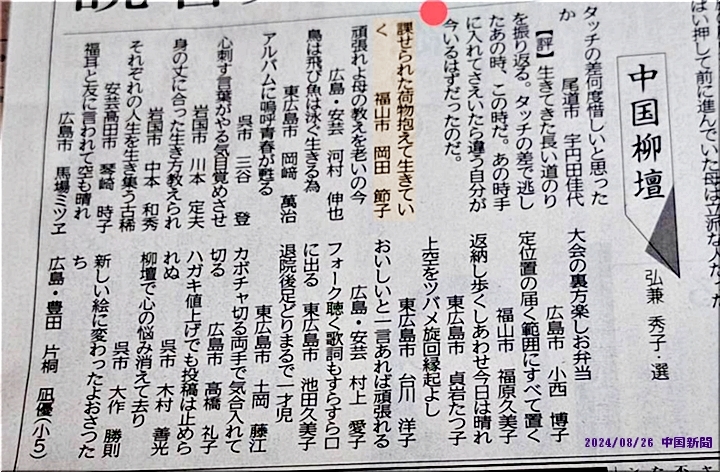 中国柳壇
弘兼 秀子・選
タッチの差何度惜しいと思った
か
尾道市 宇円田佳代
【評】生きてきた長い道のり
を振り返る。タッチの差で逃し
たあの時、この時だ。あの時手
に入れてさえいたら違う自分が
今いるはずだったのだ。
課せられた荷物抱えて生きてい
く 福山市 岡田 節子
頑張れよ母の教えを老いの今
広島・安芸 河村 伸也
鳥は飛び魚は泳ぐ生きる為
東広島市 岡﨑 萬治
アルバムに嗚呼青春が甦る
呉市 三谷 登
心刺す言葉がやる気目覚めさせ
岩国市 川本 定夫
身の丈に合った生き方教えられ
岩国市 中本 和秀
それぞれの人生を生き集う古稀
安芸高田市 琴崎 時子
福耳と友に言われて空も晴れ
広島市 馬場ミツヱ
大会の裏方楽しお弁当
広島市 小西 博子
定位置の届く範囲にすべて置く
福山市 福原久美子
返納し歩くしあわせ今日は晴れ
東広島市 貞岩たつ子
上空をツバメ旋回縁起よし
東広島市 台川 洋子
おいしいと一言あれば頑張れる
広島・安芸 村上 愛子
フォーク聴く歌詞もすらすら口
に出る 東広島市 池田久美子
退院後足どりまるで一才児
東広島市 土岡 藤江
カボチャ切る両手で気合入れて
切る 広島市 高橋 礼子
ハガキ値上げでも投稿は止めら
れぬ 呉市 木村 善光
柳壇で心の悩み消えて去り
呉市 大作 勝則
新しい絵に変わったよおさつた
ち
広島・豊田 片桐 凪優(小5)
2024/08/26 中国新聞